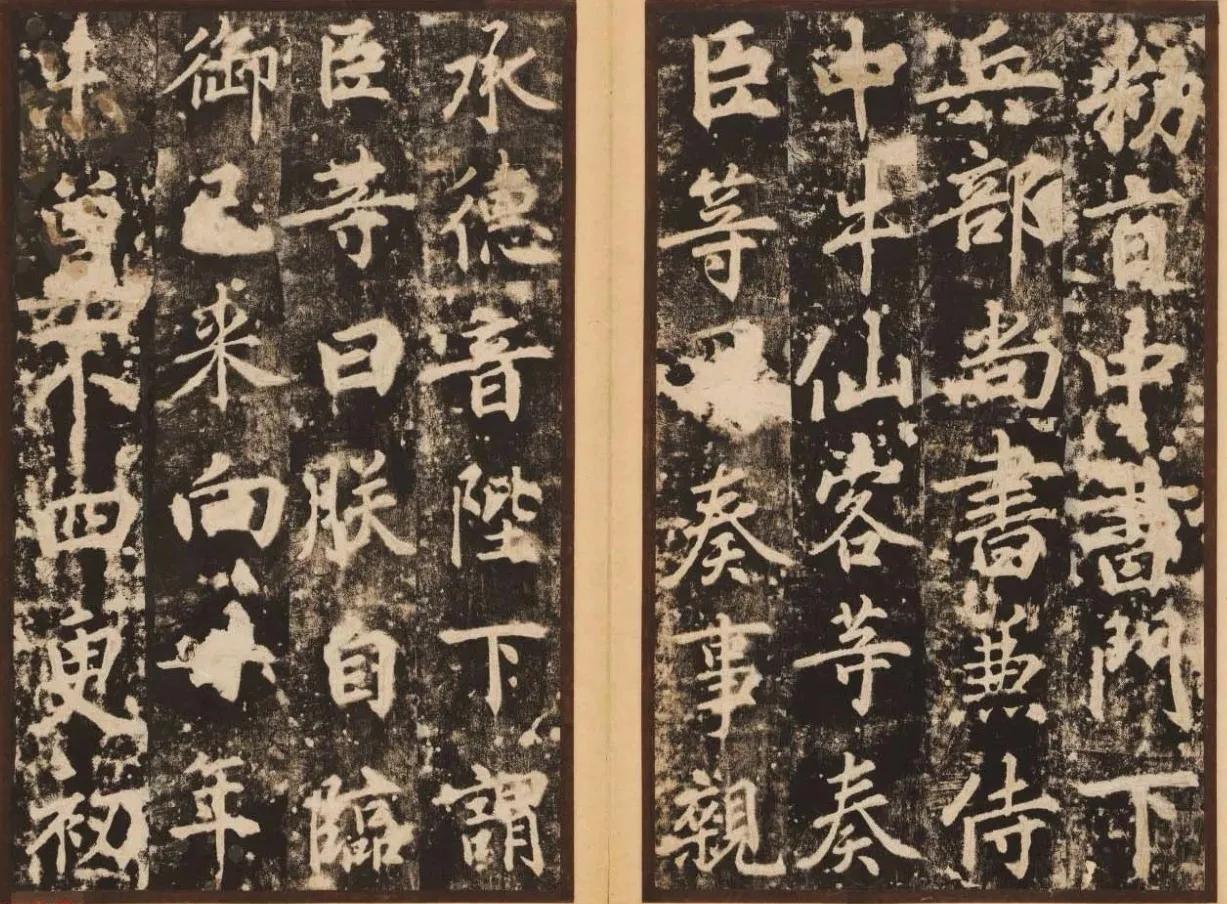 敕旨中書門下
兵部尚書兼侍
中牛仙客等奏
臣等奏事親
承德音陛下謂
臣等曰朕自臨
御已來向年
每不四更初